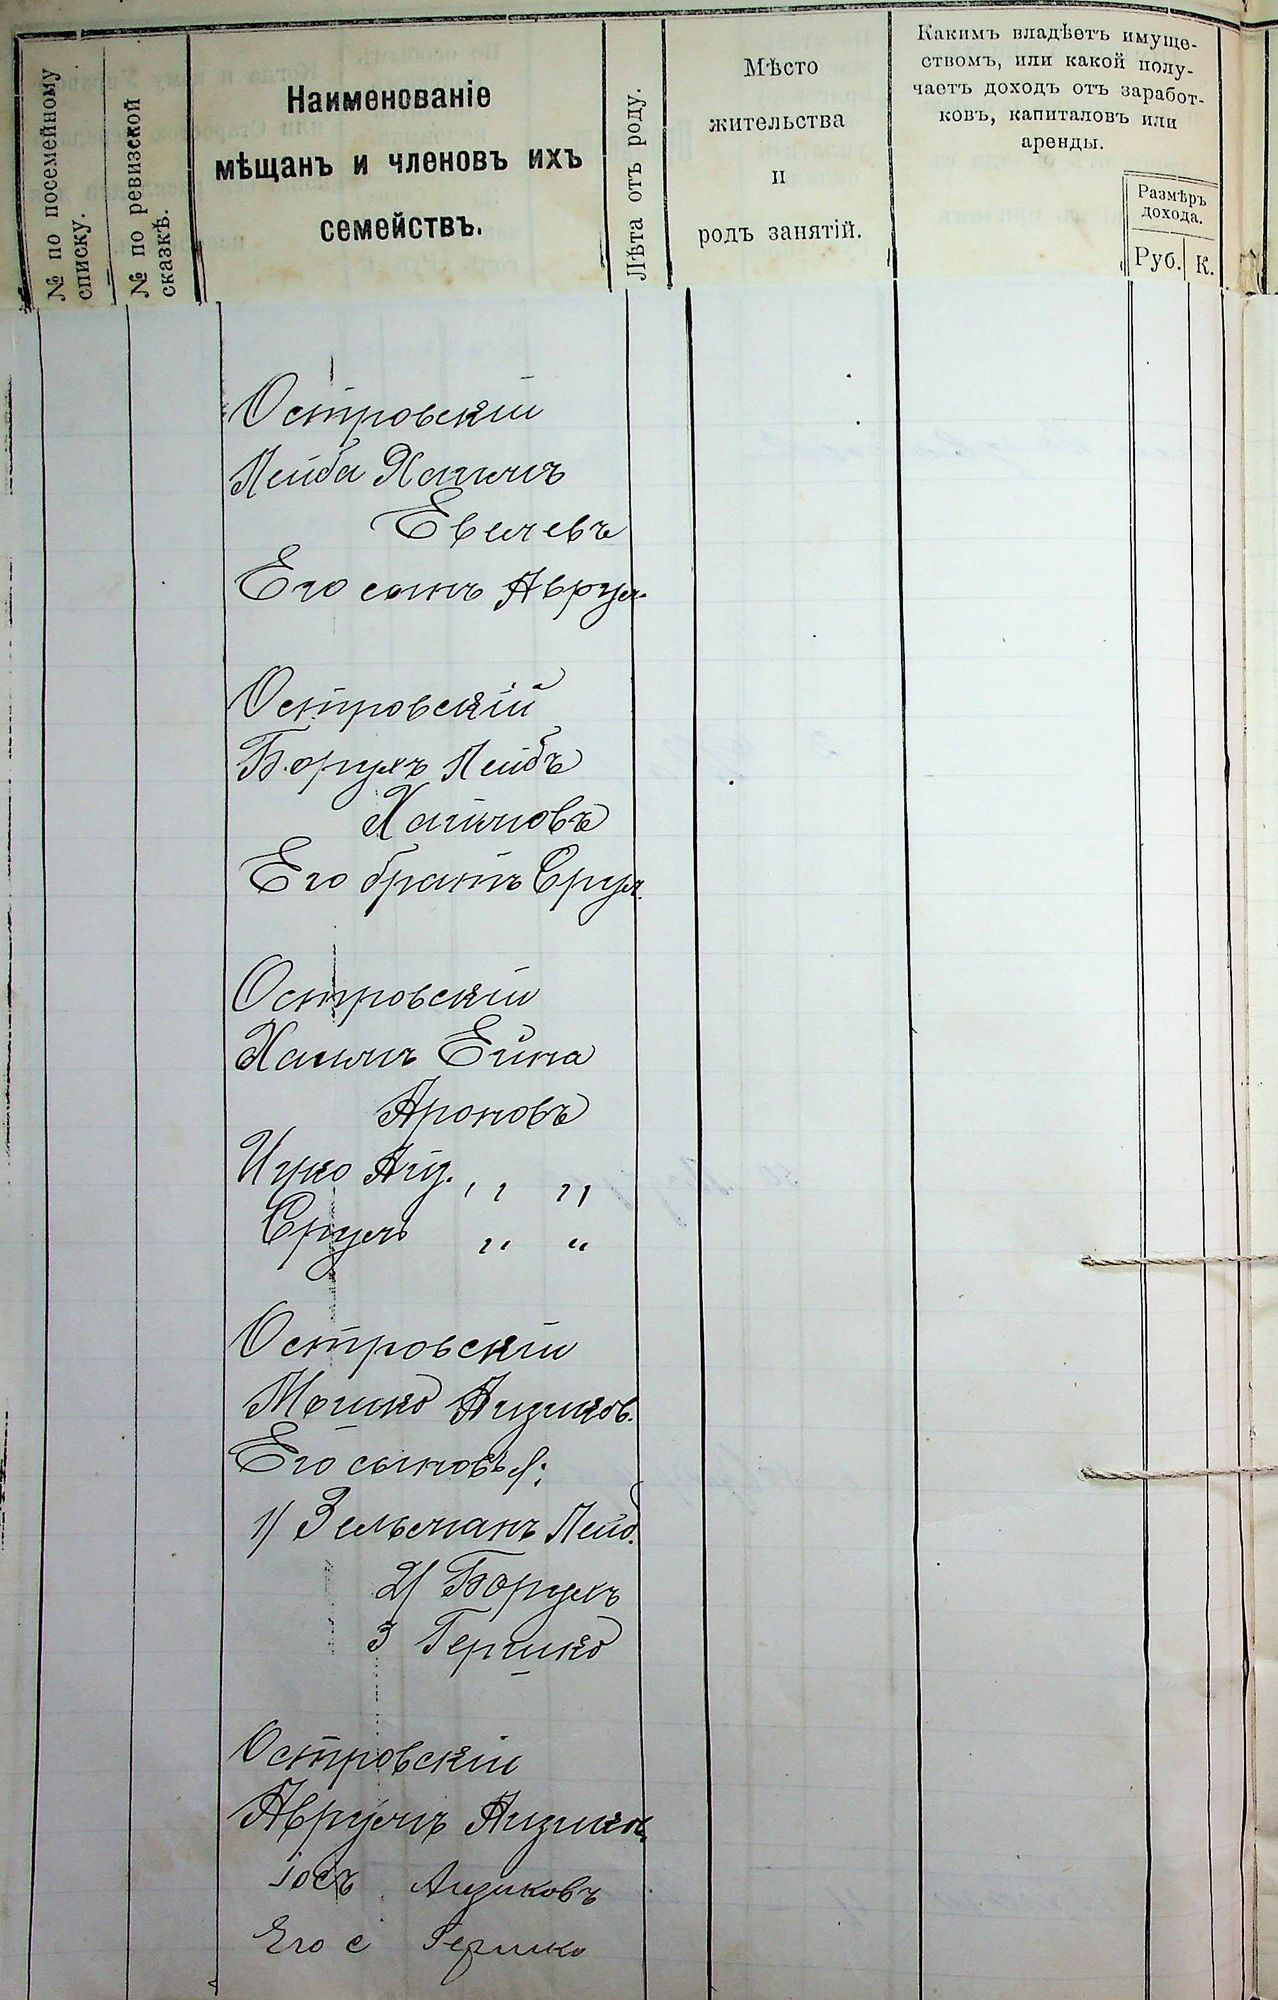 № по посемейному
списку.
№ по ревизской
сказкѣ.
Наименованіе
мѣщанъ и членовъ ихъ
семействъ.
Лѣта отъ роду.
Мѣсто
жительства
и
родъ занятій.
Какимъ владѣетъ имуще-
ствомъ, или какой полу-
чаетъ доходъ отъ заработ-
ковъ, капиталовъ или
аренды.
Размѣръ
дохода.
Руб.
К.
Островскій
Лейба Хаимъ
Евелевъ
Его сынъ Аврум.
Островскій
Борухъ Лейбъ
Хаимовъ
Его братъ Срул.
Островскій
Хаимъ Ейна
Ароновъ
Ицко Айз. „ „
Сруль „ „
Островскій
Мошко Айзиков.
Его сыновья:
1/ Зельманъ Лейб.
2/ Борухъ
3 Гершко
Островскій
Аврумъ Айзиков.
Іосъ Айзиковъ
Его с Гершко